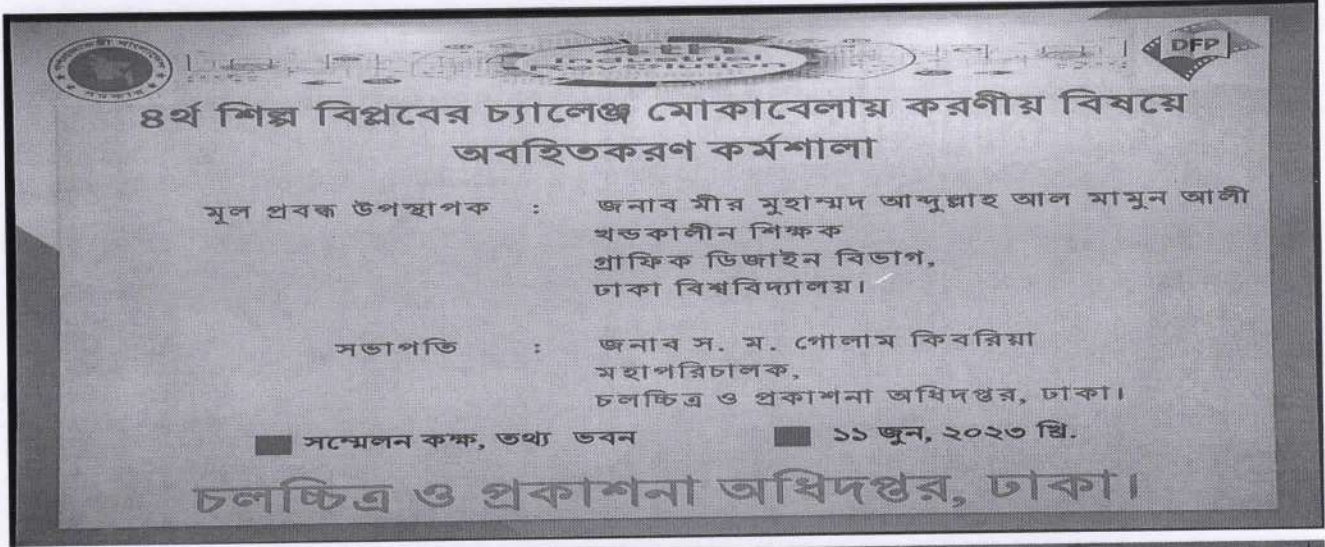 4th
Industrial
Revolution
DFP
৪র্থ শিল্প বিপ্লবের চ্যালেঞ্জ মোকাবেলায় করণীয় বিষয়ে
অবহিতকরণ কর্মশালা
মূল প্রবন্ধ উপস্থাপক : জনাব মীর মুহাম্মদ আব্দুল্লাহ আল মামুন আলী
খন্ডকালীন শিক্ষক
গ্রাফিক ডিজাইন বিভাগ,
ঢাকা বিশ্ববিদ্যালয়।
সভাপতি : জনাব স. ম. গোলাম কিবরিয়া
মহাপরিচালক,
চলচ্চিত্র ও প্রকাশনা অধিদপ্তর, ঢাকা।
সম্মেলন কক্ষ, তথ্য ভবন ১১ জুন, ২০২৩ খ্রি.
চলচ্চিত্র ও প্রকাশনা অধিদপ্তর, ঢাকা।